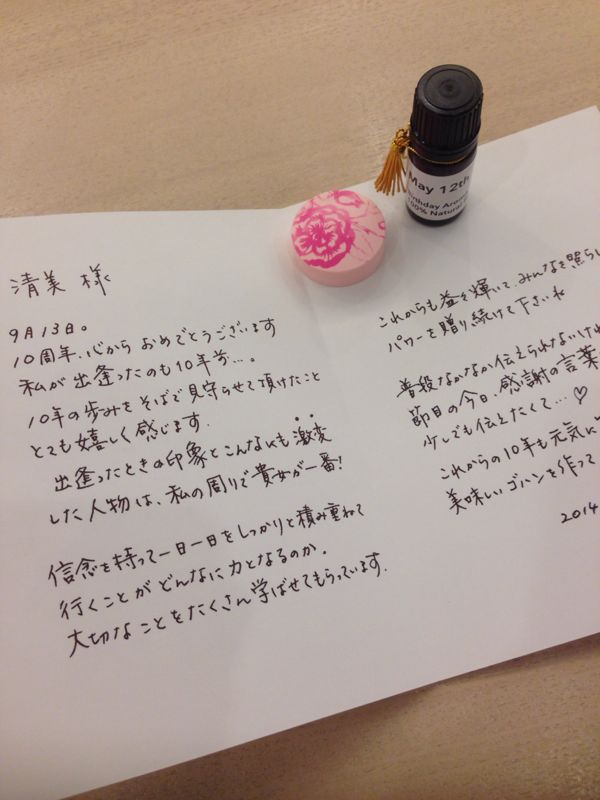 May 12th
Birthday Aroma
100% Natural
清美様
9月13日。
10周年、心から おめでとうございます
私が出逢ったのも10年前…。
10年の歩みをそばで見守らせて頂けたこと
とても嬉しく感じます。
出逢ったときの印象とこんないも激変
した人物は、私の周りで貴女が一番!
信念を持って一日一日をしっかりと積み重ねて
行くことが どんなに力となるのか。
大切なことをたくさん学ばせてもらっています。
これからも益々輝いて、みんなを照らし
パワーを贈り続けて下さいね
普段なかなか伝えられないけれ
節目の今日、感謝の言葉
少しでも伝えたくて…♡
これからの10年も元気に
美味しいゴハンを作って
2014